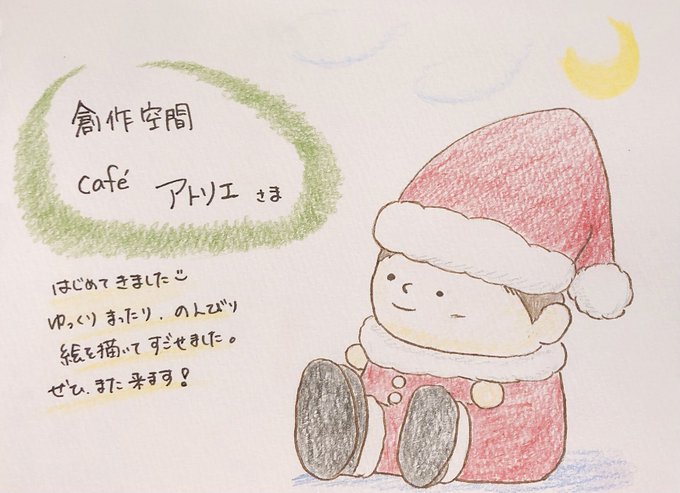 創作空間
café アトリエ さま
はじめてきました
ゆっくり まったり、のんびり
絵を描いて すごせました。
ぜひ、また来ます！